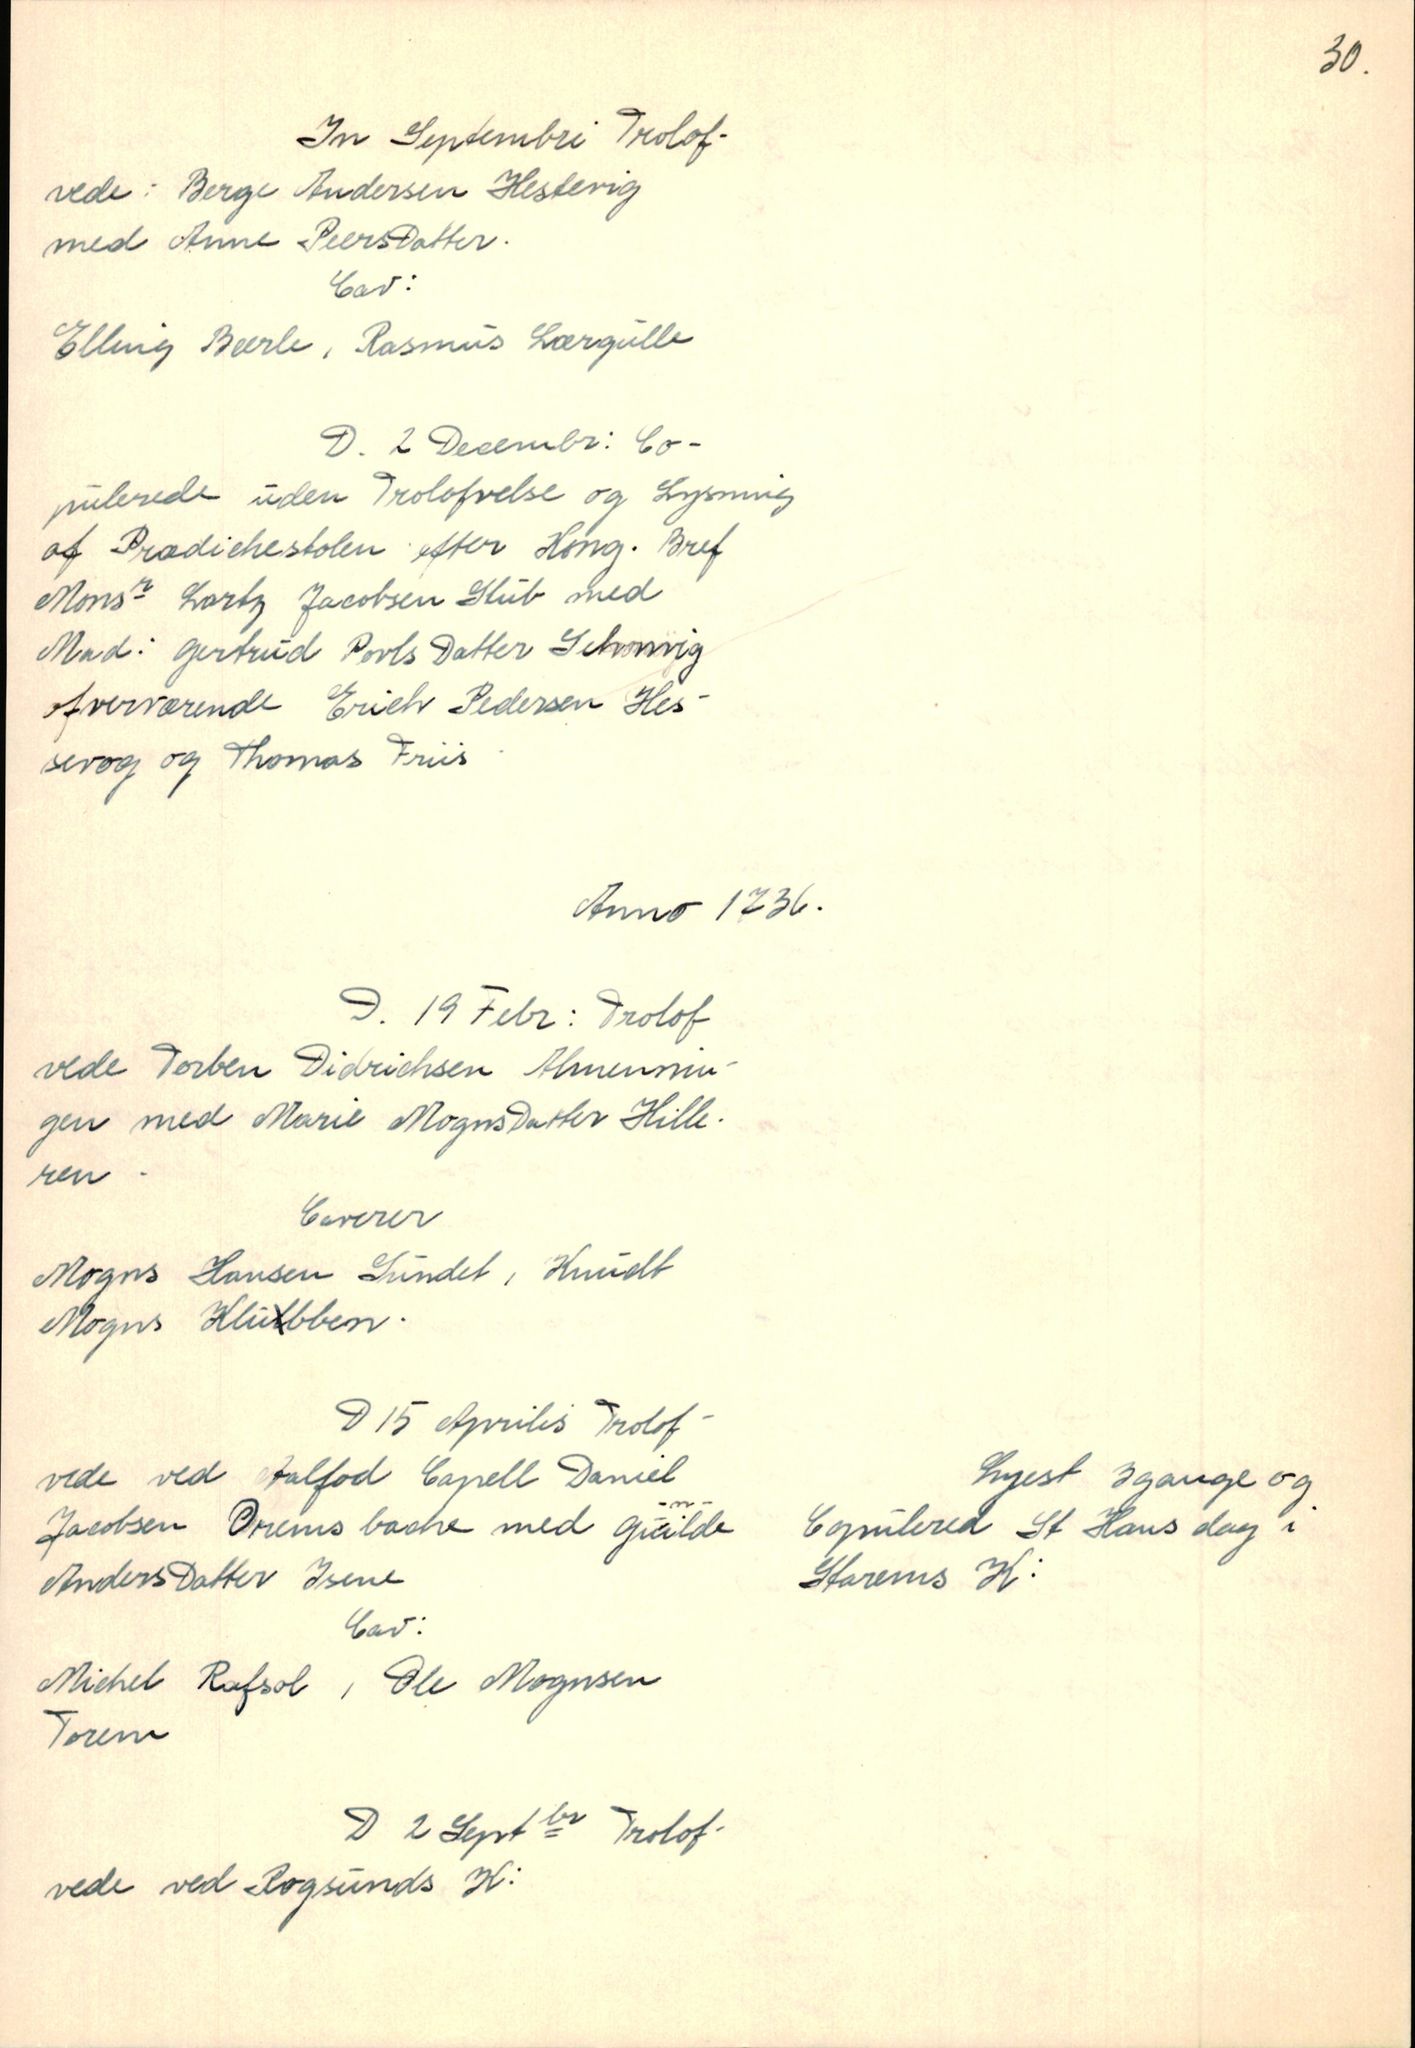 30.
In Septembri Trolof-
vede: Berge Andersen Hestevig
med Anne PeersDatter.
Cav:
Elling Berle, Rasmus Lærgulle
D. 2 Decembr: Co-
pulerede uden Trolofvelse og Lysning
af Prædichestolen efter Kong. Bref
Monsr Lartz Jacobsen Stub med
Mad: Gertrud Povls Datter Schonvig
ofverværende Erich Pedersen Hes-
sevog og Thomas Friis
Anno 1736.
D. 19 Febr: Trolof
vede Torben Didrichsen Almennin-
gen med Marie MognsDatter Hille-
ren.
Caverer
Mogns Hansen Sundet, Knudt
Mogns Klubben.
D 15 Aprilis Trolof-
vede ved Aalfod Capell Daniel
Jacobsen Oremsbache med
AndersDatter Isene
Cav:
Michel Rafsol, Ole Mognsen
Torem
Lyest 3gange og
Copulered St Hans dag i
Starems K:
D 2 Septbr Trolof-
vede ved Rogsunds K: